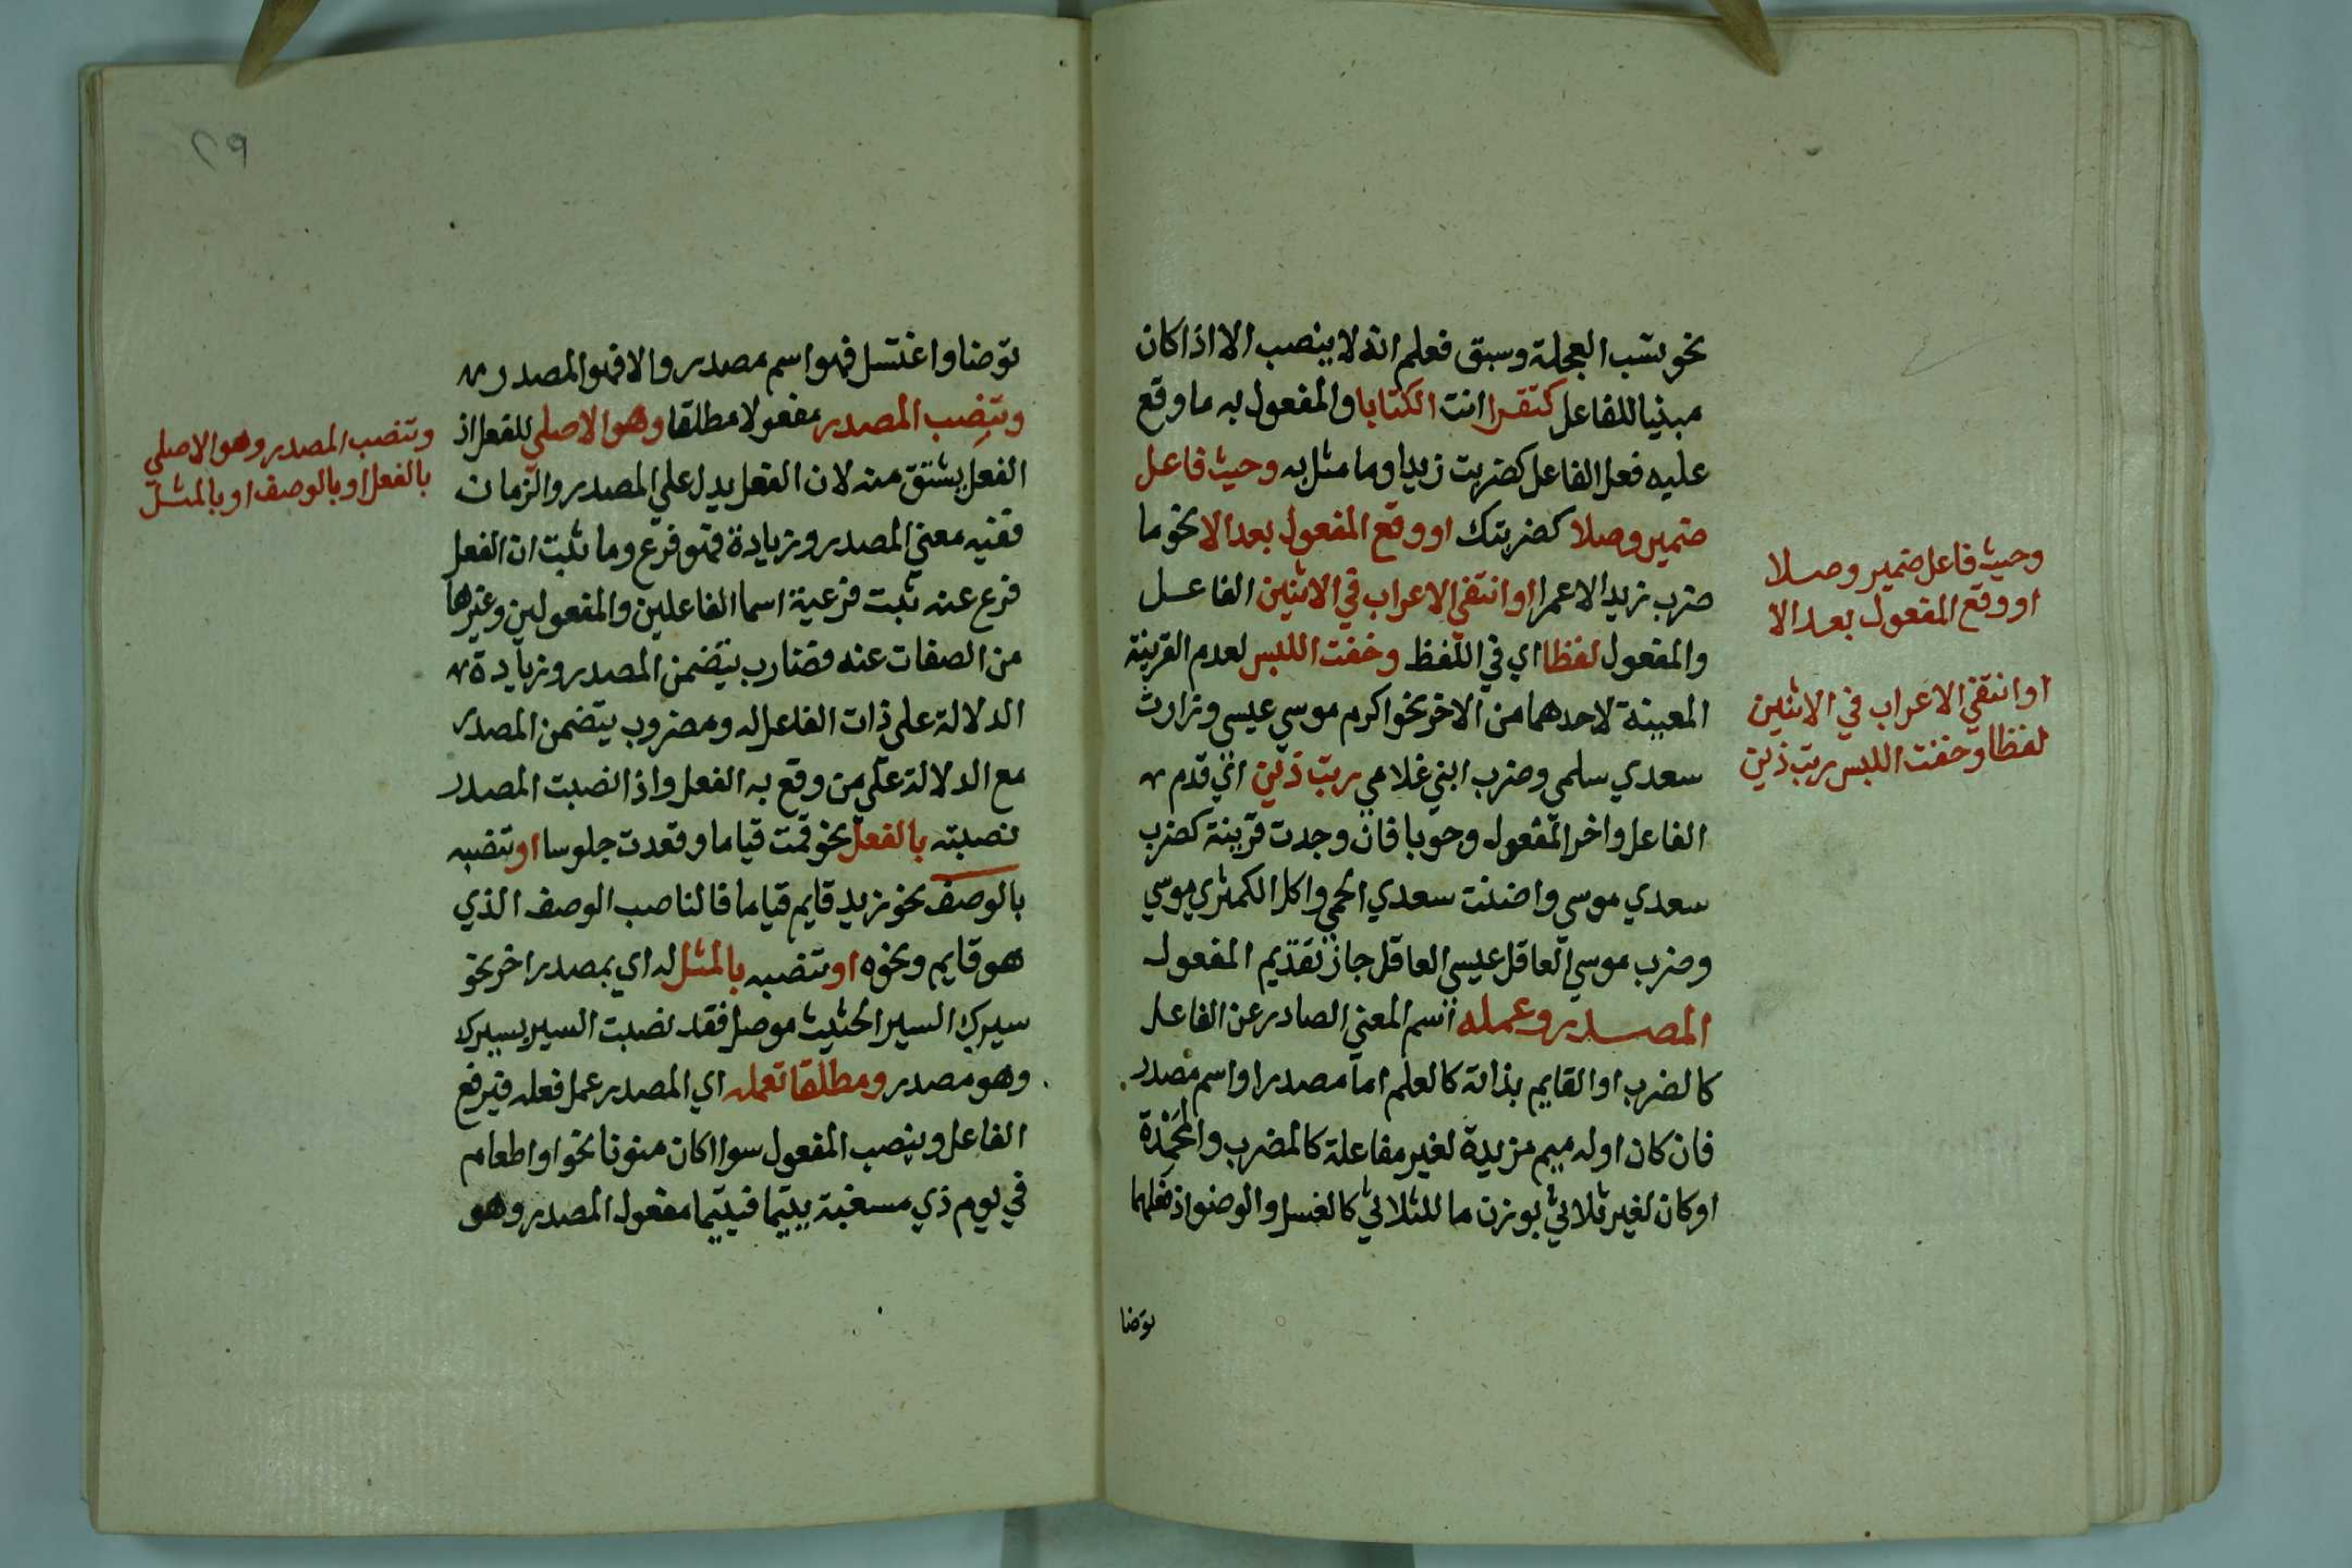 نحو نسب العجلة وسبق فعلم انه لا ينصب الا اذا كان
مبنيا للفاعل كتقرا انت الكتابا والمفعول به ما وقع
عليه فعل الفاعل كضربت زيدا وما مثل به وحيث فاعل
ضمير وصلا كضربتك او وقع المفعول بعد الا نحو ما
ضرب زيد الا عمرا او انتفى الاعراب في الاثنين الفاعل
والمفعول لفظا اي في اللفظ وخفت اللبس لعدم القرينة
المعينة لاحدهما من الاخر نحو اكرم موسي عيسى وزارت
سعدي سلمى وضرب ابني غلامي رتب ذين اي قدم
الفاعل واخر المفعول وجوبا فان وجدت قرينة كضرب
سعدي موسى واضنت سعدي الحمى واكل الكمثري موسي
وضرب موسي العاقل عيسي العاقل جاز تقديم المفعول
المصدر وعمله اسم المعني الصادر عن الفاعل
كالضرب او القايم بذاته كالعلم اما مصدر او اسم مصدر
فان كان اوله ميم مزيدة لغير مفاعلة كالمضرب والمحمدة
او كان لغير ثلاثي بوزن ما للثلاثي كالغسل والوضو اذ فعلهما
توضا
وحيث فاعل ضمير وصلا
او وقع المفعول بعد الا
او انتفي الاعراب في الاثنين
لفظا وخفت اللبس رتب ذين
٢٩
توضا واغتسل فهو اسم مصدر والا فهو المصدر
وتنصب المصدر مفعولا مطلقا وهو الاصلي للفعل اذ
الفعل يشتق منه لان الفعل يدل علي المصدر والزمان
ففيه معني المصدر وزيادة فهو فرع وما ثبت ان الفعل
فرع عنه ثبت فرعية اسما الفاعلين والمفعولين وغيرها
من الصفات عنه فضارب يتضمن المصدر وزيادة
الدلالة على ذات الفاعل له ومضروب يتضمن المصدر
مع الدلالة علي من وقع به الفعل واذا نصبت المصدر
نصبته بالفعل نحو قمت قياما وقعدت جلوسا او تنصبه
بالوصف نحو زيد قايم قياما فالناصب الوصف الذي
هو قايم ونحوه او تنصبه بالمثل له اي بمصدر اخر نحو
سيرك السير الحثيث موصل فقد نصبت السير بسيرك
وهو مصدر ومطلقا تعمله اي المصدر عمل فعله فيرفع
الفاعل وينصب المفعول سوا اكان منونا نحو او اطعام
في يوم ذي مسغبة يتيما فيتيما مفعول المصدر وهو
وتنصب المصدر وهو الاصلي
بالفعل او بالوصف او بالمثل